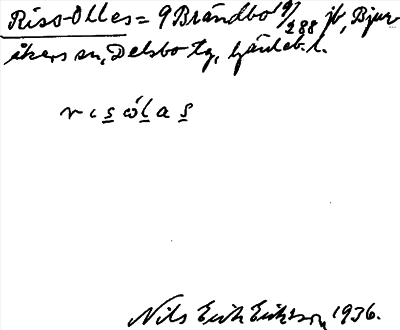 Riso-Olles = 9 Brändbo 19/288 jb, Bjur
åkers sn, Delsbo tg, Gävleb. l.
r i s ó l a s
Nils Erik Eriksson 1936.